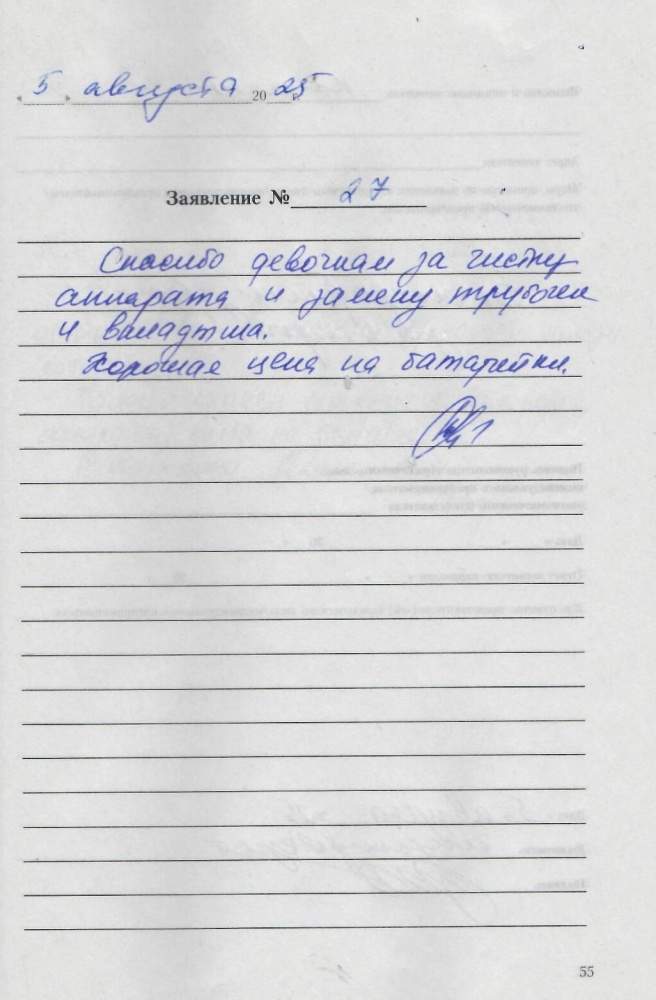 5 августа 2025 г.
Заявление № 27
Спасибо девочкам за чистку
аппарата и замену трубочек
и вкладыша.
Хорошая цена на батарейки.
55